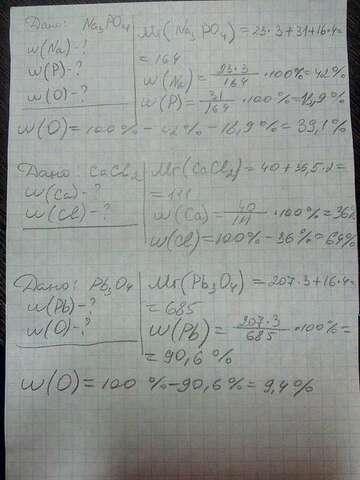 Дано: Na₃PO₄
w(Na)-?
w(P)-?
w(O)-?
Mr(Na₃PO₄)=23·3+31+16·4=
=164
w(Na)=23·3/164·100%=42%
w(P)=31/164·100%=18,9%
w(O)=100%-42%-18,9%=39,1%
Дано: CaCl₂
w(Ca)-?
w(Cl)-?
Mr(CaCl₂)=40+35,5·2=
=111
w(Ca)=40/111·100%=36%
w(Cl)=100%-36%=64%
Дано: Pb₃O₄
w(Pb)-?
w(O)-?
Mr(Pb₃O₄)=207·3+16·4=
=685
w(Pb)=207·3/685·100%=
=90,6%
w(O)=100%-90,6%=9,4%